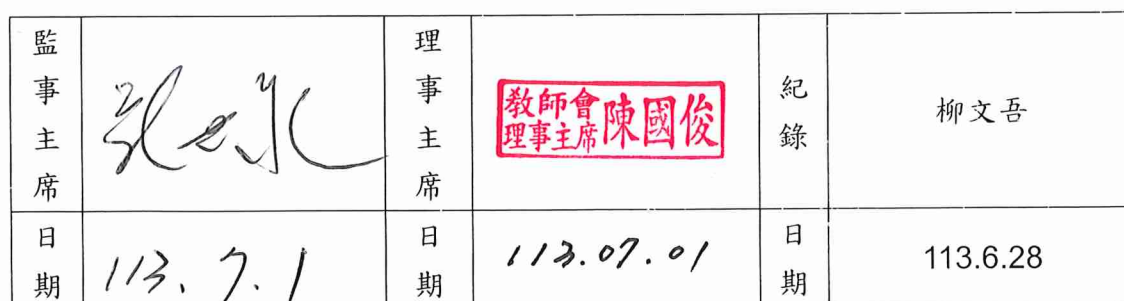 監事主席
理事主席
教師會
理事主席 陳國俊
紀錄
柳文吾
日期
113.7.1
日期
113.07.01
日期
113.6.28